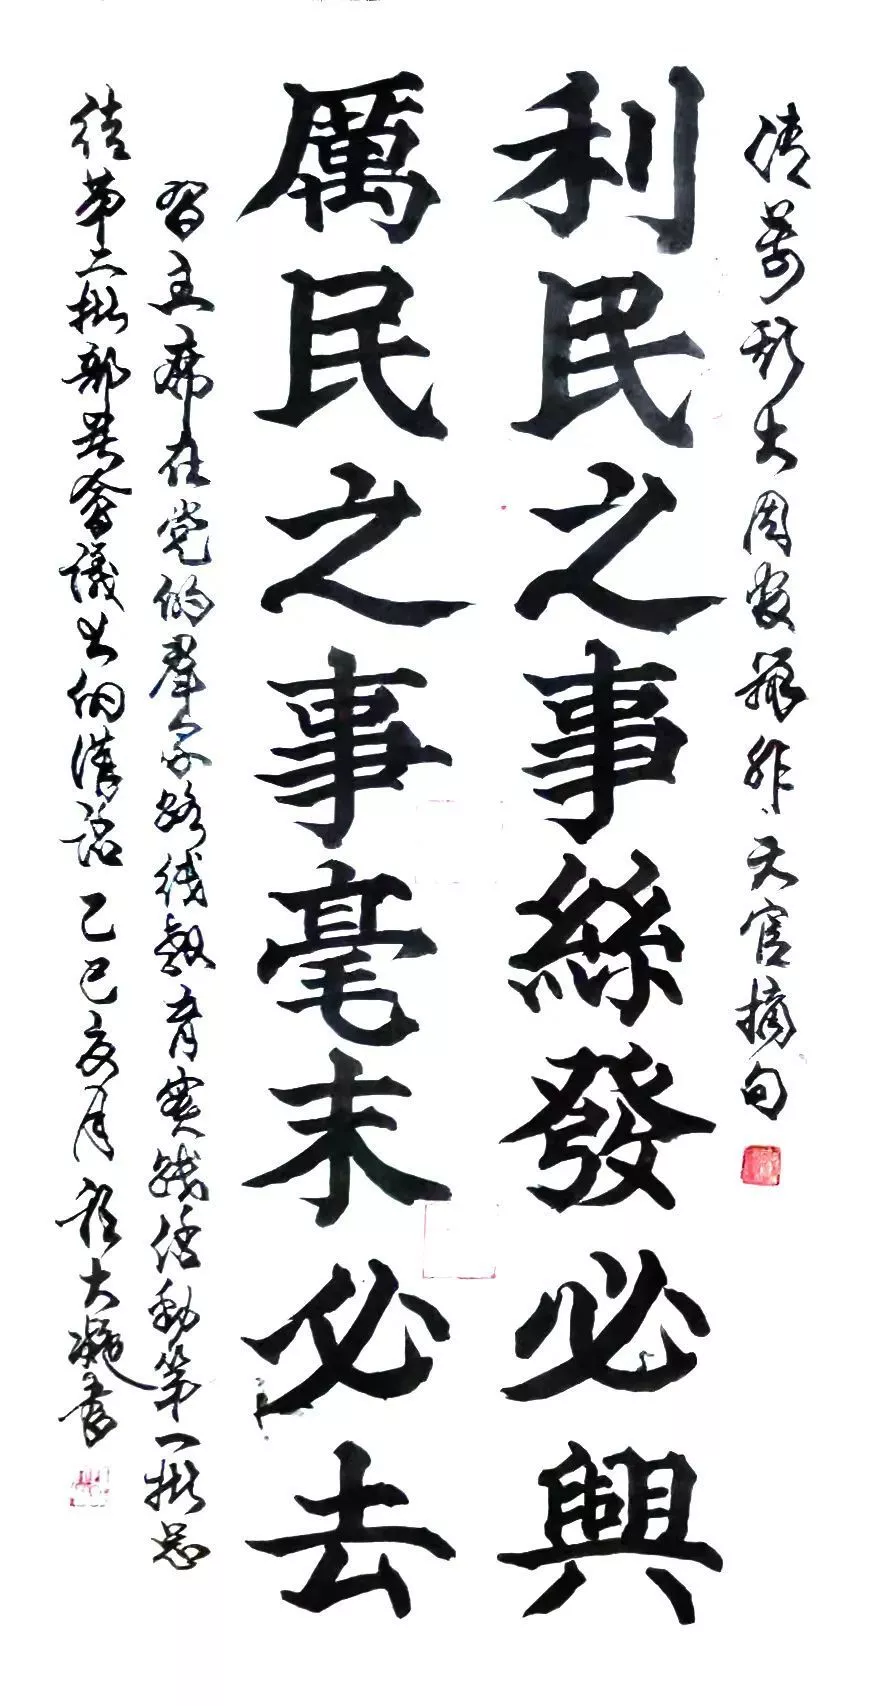 清萬斯大周官辨非天官摘句
利民之事絲發必興
厲民之事毫末必去
習主席在党的羣众路线教育实践活動第一批总
结第二批部署會議上的講話乙巳亥月大書